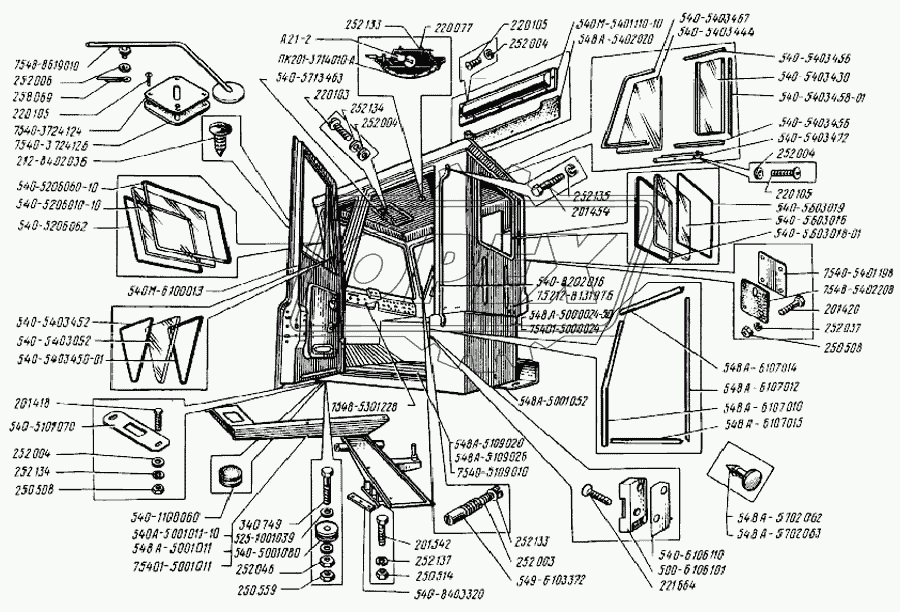 252133
220077
А21-2
ПК201-3714010-А
540-5713463
220103
252134
252004
220105
252004
540М-5401110-10
548А-5402020
540-5403467
540-5403444
540-5403456
540-5403430
540-5403458-01
540-5403456
540-5403472
252004
220105
7548-8619010
252006
258069
220105
7540-3724124
7540-3724126
212-8402036
540-5206060-10
540-5206010-10
540-5206062
252135
201454
540-5603019
540-5603016
540-5603018-01
540М-6100013
540-8202016
75212-8131976
548А-5000024-30
75401-5000024
7540-5401198
7548-5402208
201420
252037
250508
540-5403452
540-5403052
540-5403450-01
548А-6107014
548А-6107012
548А-6107010
548А-6107015
201418
540-5101070
252004
252134
250508
7548-5301228
548А-5001052
548А-5109020
548А-5109026
7540-5109010
540-1100060
540А-5001011-10
548А-5001011
75401-5001011
340749
525-1001039
540-5001080
252046
250559
201542
252137
250514
540-8403320
252133
252003
549-6103372
540-6106110
500-6106101
221664
548А-5702062
548А-5702063